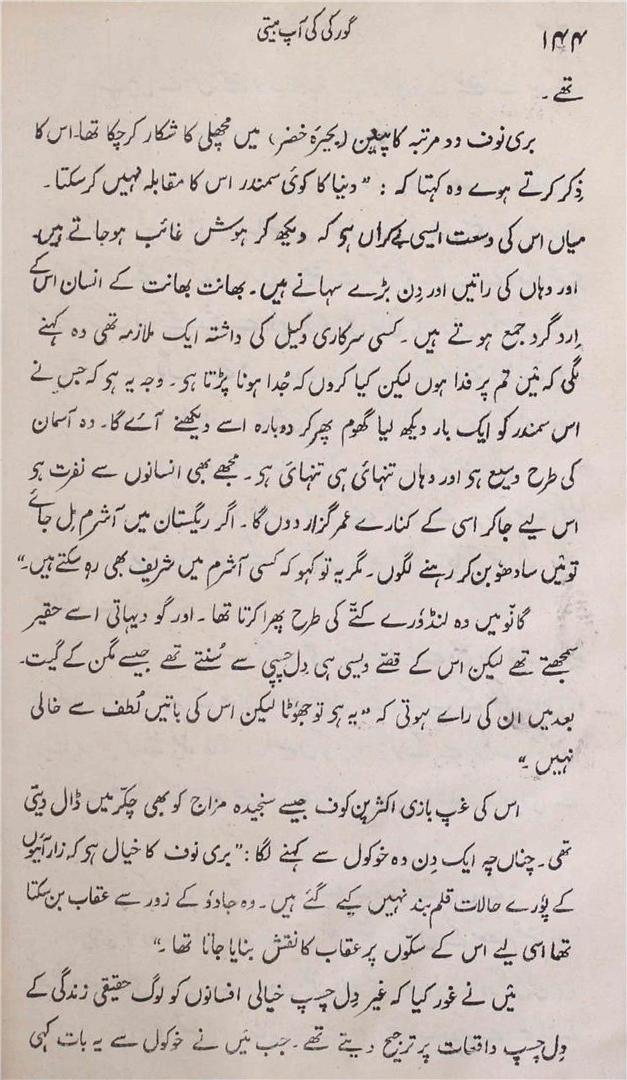 ۱۴۴
گورکی کی آپ بیتی
تھے۔
بری نوف دو مرتبہ کاسپین (بحیرۂ خضر) میں مچھلی کا شکار کرچکا تھا۔ اس کا
ذِکر کرتے ہوے وہ کہتا کہ : ”دنیا کا کوئی سمندر اس کا مقابلہ نہیں کرسکتا۔
میاں اس کی وسعت ایسی بےکراں ہی کہ دیکھ کر ہوش غائب ہوجاتے ہیں۔
اور وہاں کی راتیں اور دِن بڑے سہانے ہیں۔ بھانت بھانت کے انسان اس کے
اِردگرد جمع ہوتے ہیں۔ کسی سرکاری وکیل کی داشتہ ایک ملازمہ تھی وہ کہنے
لگی کہ مَیں تم پر فدا ہوں لیکن کیا کروں کہ جُدا ہونا پڑتا ہو۔ وجہ یہ ہو کہ جس نے
اس سمندر کو ایک بار دیکھ لیا گھوم پھر کر دوبارہ اسے دیکھنے آے گا۔ وہ آسمان
کی طرح وسیع ہو اور وہاں تنہائی ہی تنہائی ہو۔ مجھے بھی انسانوں سے نفرت ہو
اس لیے جاکر اسی کے کنارے عمر گزار دوں گا۔ اگر ریگستان میں آشرم مِل جائے
تو مَیں سادھو بن کر رہنے لگوں۔ مگر یہ تو کہو کہ کسی آشرم میں شریف بھی رہ سکتے ہیں۔“
گانْو میں وہ لنڈورے کتّے کی طرح پھرا کرتا تھا۔ اور گو دیہاتی اسے حقیر
سمجھتے تھے لیکن اس کے قصّے ویسی ہی دِل چپی سے سُنتے تھے جیسے مگن کے گیت۔
بعد میں ان کی راے ہوتی کہ ”یہ ہو تو جھوٗٹا لیکن اس کی باتیں لُطف سے خالی
نہیں۔“
اس کی غپ بازی اکثر پن کوف جیسے سنجیدہ مزاج کو بھی چکّر میں ڈال دیتی
تھی۔ چناں چہ ایک دِن وہ خوکول سے کہنے لگا: ”بری نوف کا خیال ہو کہ زار آئیوں
کے پوٗرے حالات قلم بند نہیں کیے گئے ہیں۔ وہ جادوٗ کے زور سے عقاب بن سکتا
تھا اسی لیے اس کے سکّوں پر عقاب کا نقش بنایا جاتا تھا۔“
مَیں نے غور کیا کہ غیر دِل چسپ خیالی افسانوں کو لوگ حقیقی زندگی کے
دِل چسپ واقعات پر ترجیح دیتے تھے۔ جب مَیں نے خوکول سے یہ بات کہی